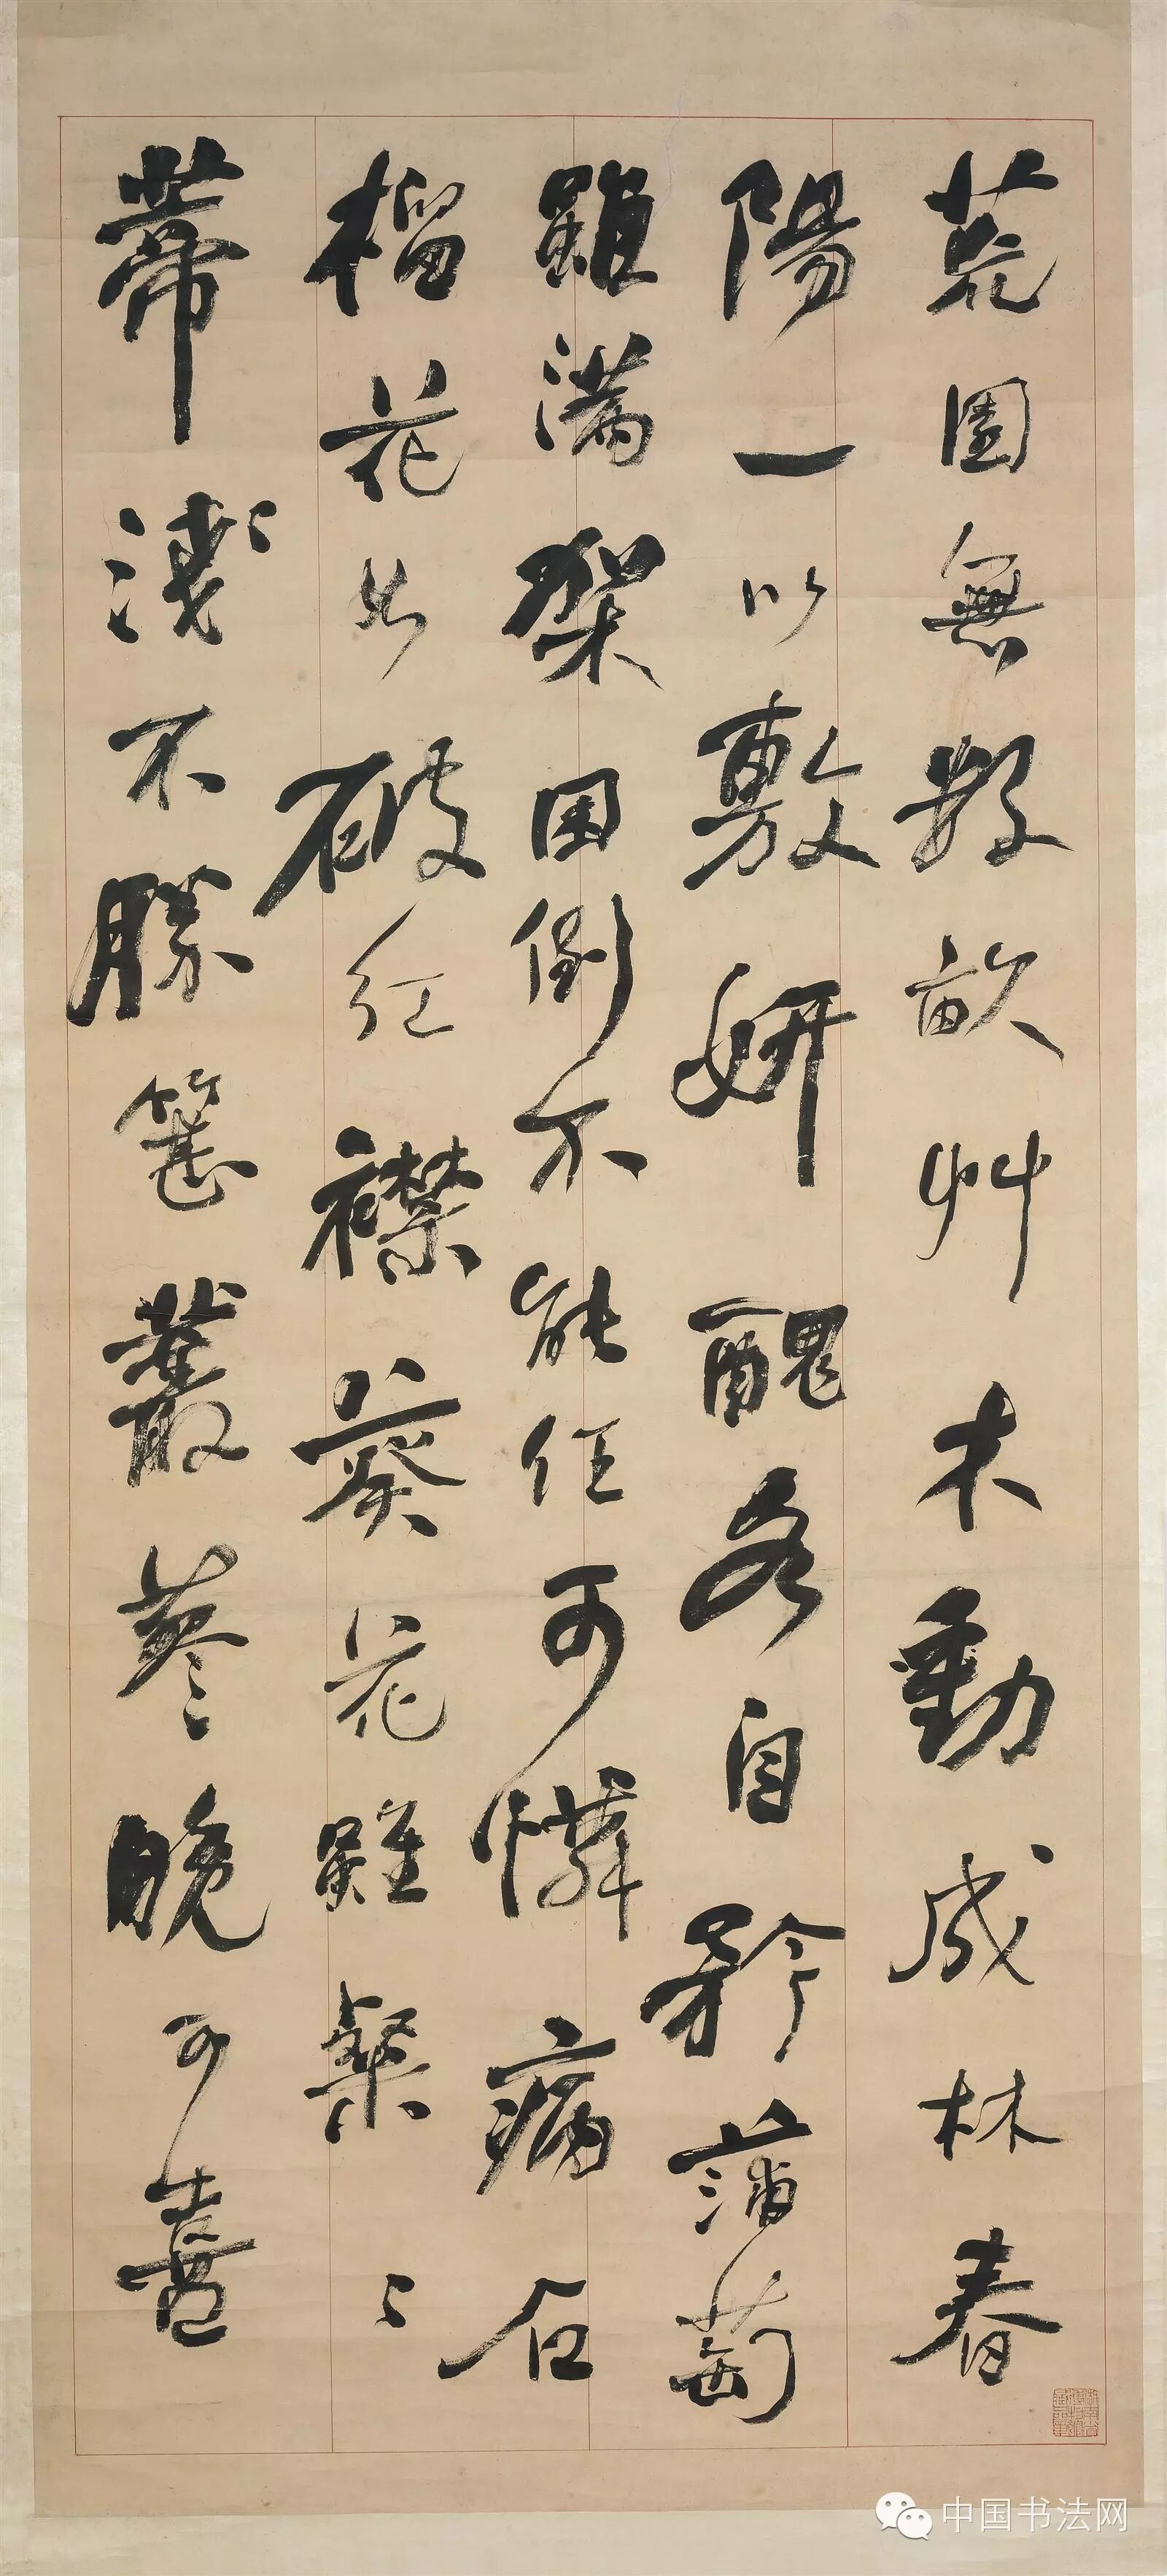 荒園無數畝艸木動成林春
陽一以敷妍醜各自矜蒲萄
雖滿架困倒不能任可憐病石
榴花如破紅襟葵花雖粲〻
蔕淺不勝簪叢蓼晚可喜
中国书法网